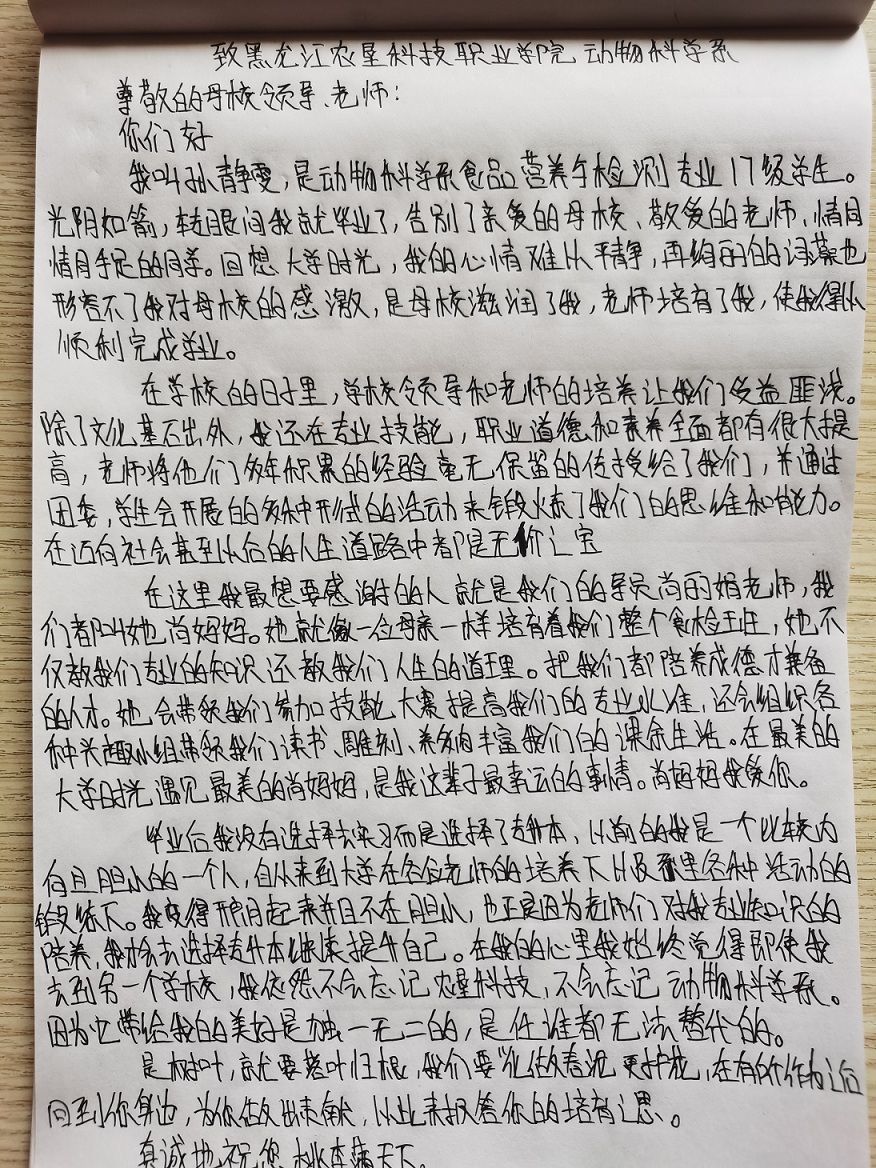 致黑龙江农垦科技职业学院动物科学系
尊敬的母校领导、老师：
你们好
我叫孙静雯，是动物科学系食品营养与检测专业17级学生。
光阴如箭，转眼间我就毕业了，告别了亲爱的母校、敬爱的老师、情同
情同手足的同学。回想大学时光，我的心情难以平静，再绚丽的词藻也
形容不了我对母校的感激，是母校滋润了我，老师培育了我，使我得以
顺利完成学业。
在学校的日子里，学校领导和老师的培养让我们受益匪浅。
除了文化基石出外，我还在专业技能，职业道德和素养全面都有很大提
高，老师将他们多年积累的经验毫无保留的传授给了我们，并通过
团委，学生会开展的多种形式的活动来锻炼了我们的思维和能力。
在迈向社会甚至以后的人生道路中都是无价之宝
在这里我最想要感谢的人就是我们的导员尚丽娟老师，我
们都叫她尚妈妈。她就像一位母亲一样培育着我们整个食检班，她不
仅教我们专业的知识还教我们人生的道理。把我们都培养成德才兼备
的人才。她会带领我们参加技能大赛提高我们的专业水准，还会组织各
种兴趣小组带领我们读书、雕刻、养多肉丰富我们的课余生活。在最美的
大学时光遇见最美的尚妈妈，是我这辈子最幸运的事情。尚妈妈我爱你。
毕业后我没有选择去实习而是选择了专升本，以前的我是一个比较内
向且胆小的一个人，自从来到大学在各位老师的培养下以及系里各种活动的
锻炼下。我变得开朗起来并且不在胆小，也正是因为老师们对我专业知识的
陪养，我才会去选择专升本继续提升自己。在我的心里我始终觉得即使我
去到另一个学校，我依然不会忘记农垦科技，不会忘记动物科学系。
因为它带给我的美好是独一无二的，是任谁都无法替代的。
是树叶，就要落叶归根，我们要“化做春泥更护花，在有所作为之后
回到你身边，为你做出贡献，以此来报答你的培育之恩。
真诚地祝您桃李满天下。